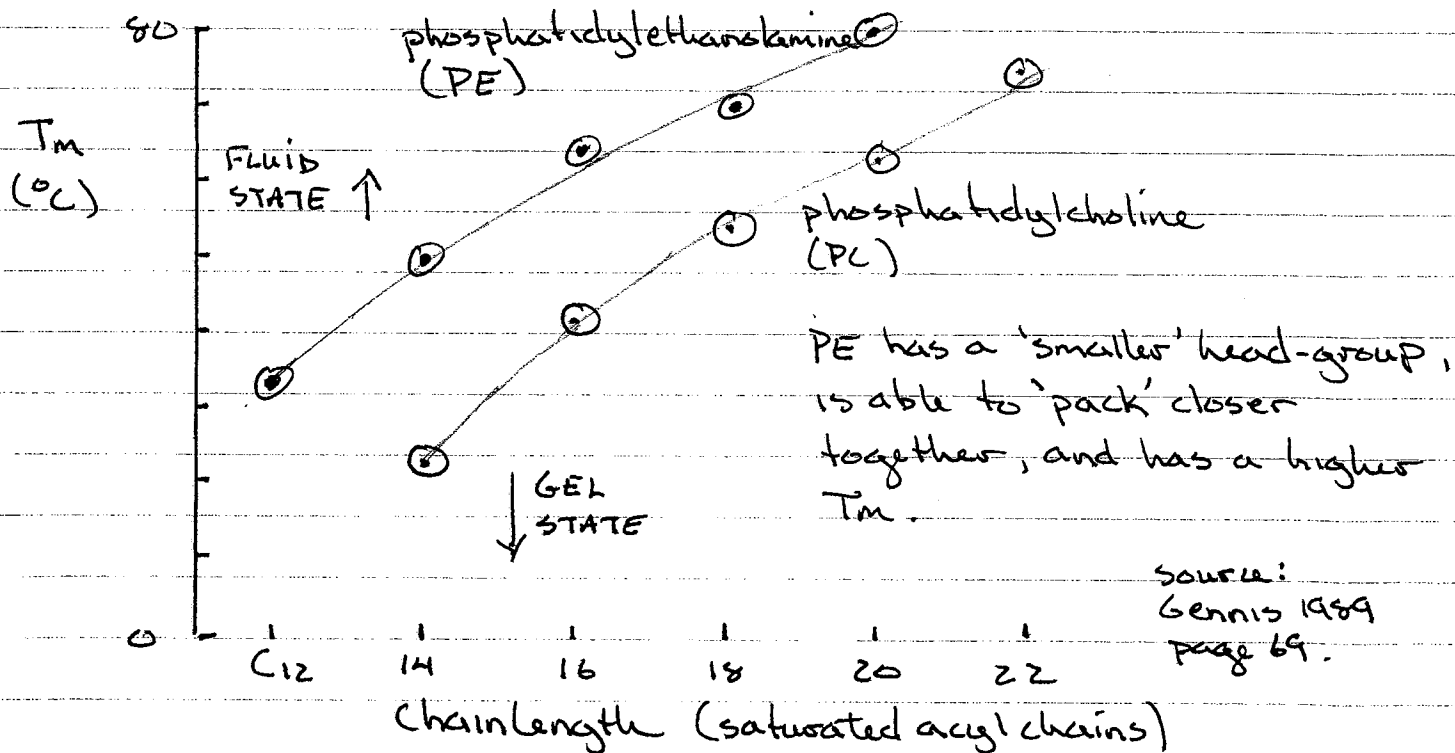 80
phosphatidylethanolamine
(PE)
Tm
(°C)
FLUID
STATE ↑
phosphatidylcholine
(PC)
PE has a 'smaller' head-group,
is able to 'pack' closer
together, and has a higher
Tm.
↓ GEL
STATE
source:
Gennis 1989
page 69.
0
C12 14 16 18 20 22
Chainlength (saturated acyl chains)